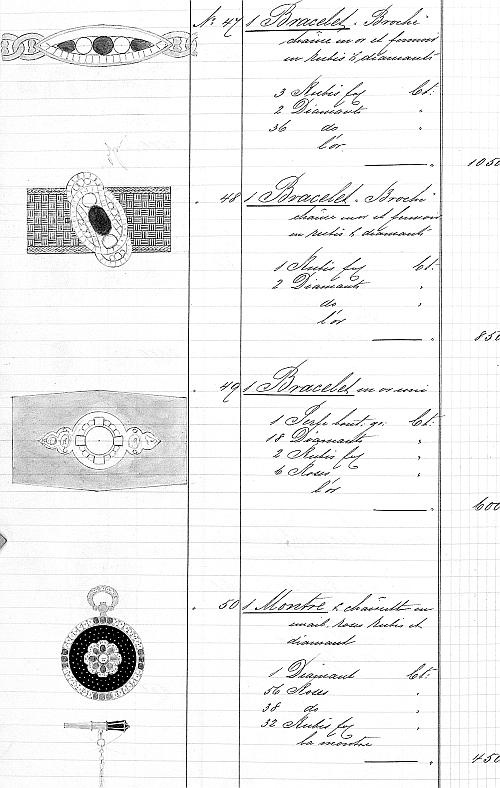 No 47 1 Bracelet. Broche
chaîne en or et fermoir
en rubis & diamants
3 Rubis Ct:
2 Diamants "
36 do "
l'or
" 1050
" 48 1 Bracelet. Broche
chaîne en or et fermoir
en rubis & diamants
1 Rubis Ct:
2 Diamants "
do "
l'or
" 850
" 49 1 Bracelet en or uni
1 Perle bout. Ct:
18 Diamants "
2 Rubis "
6 Roses "
l'or
" 600
" 50 1 Montre & en
émail roses rubis et
diamant
1 Diamant Ct:
56 Roses "
38 do "
32 Rubis "
la montre
" 450